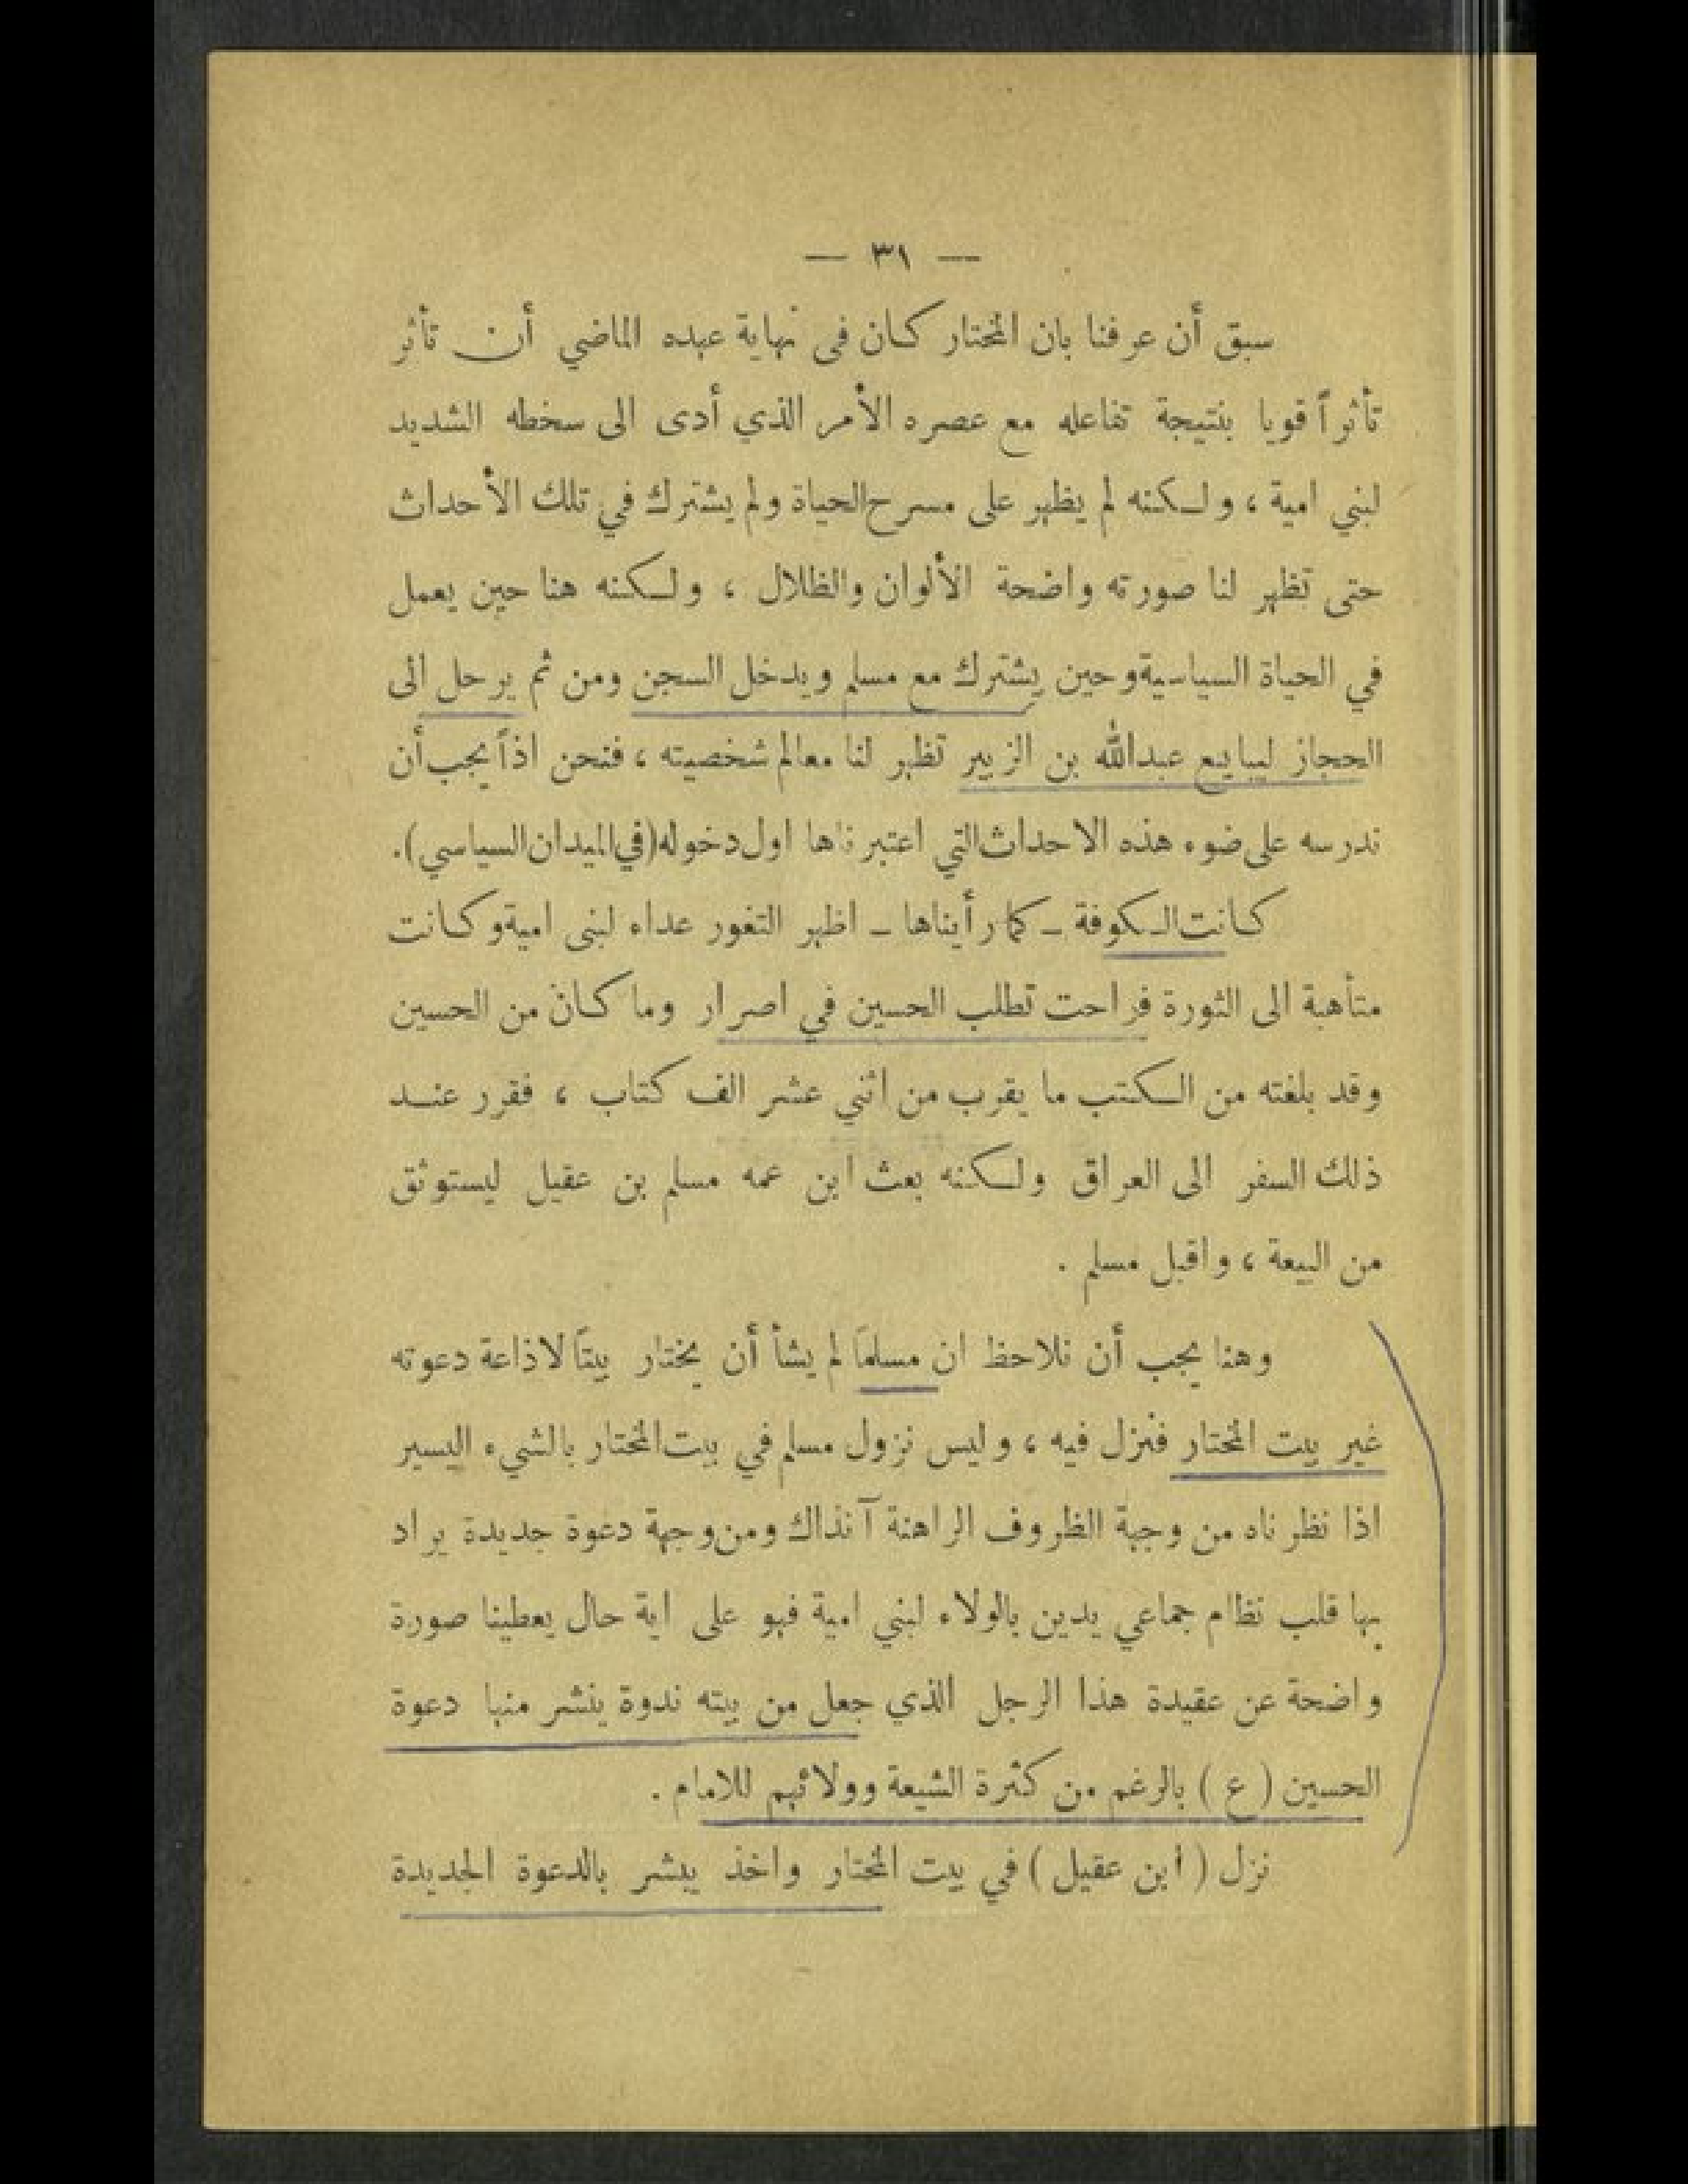 — ٣١ —
سبق أن عرفنا بان المختار كان فى نهاية عهده الماضي أن تأثر
تأثراً قويا بنتيجة تفاعله مع عصره الأمر الذي أدى الى سخطه الشديد
لبني امية ، ولكنه لم يظهر على مسرح الحياة ولم يشترك في تلك الأحداث
حتى تظهر لنا صورته واضحة الألوان والظلال ، ولكنه هنا حين يعمل
في الحياة السياسية وحين يشترك مع مسلم ويدخل السجن ومن ثم يرحل الى
الحجاز ليبايع عبدالله بن الزبير تظهر لنا معالم شخصيته ، فنحن اذاً يجب أن
ندرسه على ضوء هذه الاحداث التي اعتبرناها اول دخوله (في الميدان السياسي).
كانت الكوفة ـ كما رأيناها ـ اظهر الثغور عداء لبنى امية وكانت
متأهبة الى الثورة فراحت تطلب الحسين في اصرار وما كان من الحسين
وقد بلغته من الكتب ما يقرب من اثني عشر الف كتاب ، فقرر عند
ذلك السفر الى العراق ولكنه بعث ابن عمه مسلم بن عقيل ليستوثق
من البيعة ، واقبل مسلم .
وهنا يجب أن نلاحظ ان مسلماً لم يشأ أن يختار بيتاً لاذاعة دعوته
غير بيت المختار فنزل فيه ، وليس نزول مسلم في بيت المختار بالشيء اليسير
اذا نظرناه من وجهة الظروف الراهنة آنذاك ومن وجهة دعوة جديدة يراد
بها قلب نظام جماعي يدين بالولاء لبني امية فهو على اية حال يعطينا صورة
واضحة عن عقيدة هذا الرجل الذي جعل من بيته ندوة ينشر منها دعوة
الحسين ( ع ) بالرغم من كثرة الشيعة وولائهم للامام .
نزل ( ابن عقيل ) في بيت المختار واخذ يبشر بالدعوة الجديدة